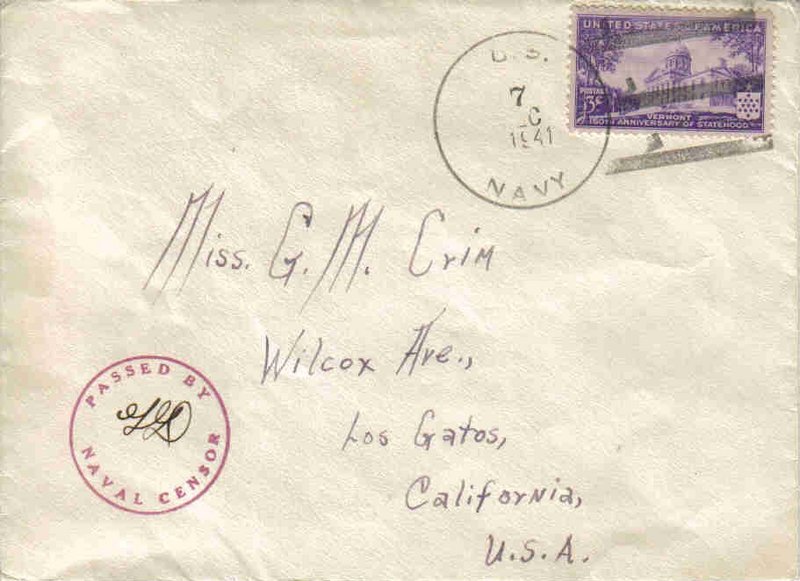 UNITED STATES OF AMERICA
POSTAL
3¢
VERMONT
150TH ANNIVERSARY OF STATEHOOD
U.S.
7
1941
NAVY
Miss. G. M. Crim
Wilcox Ave.,
Los Gatos,
California,
U.S.A.
PASSED BY
NAVAL CENSOR